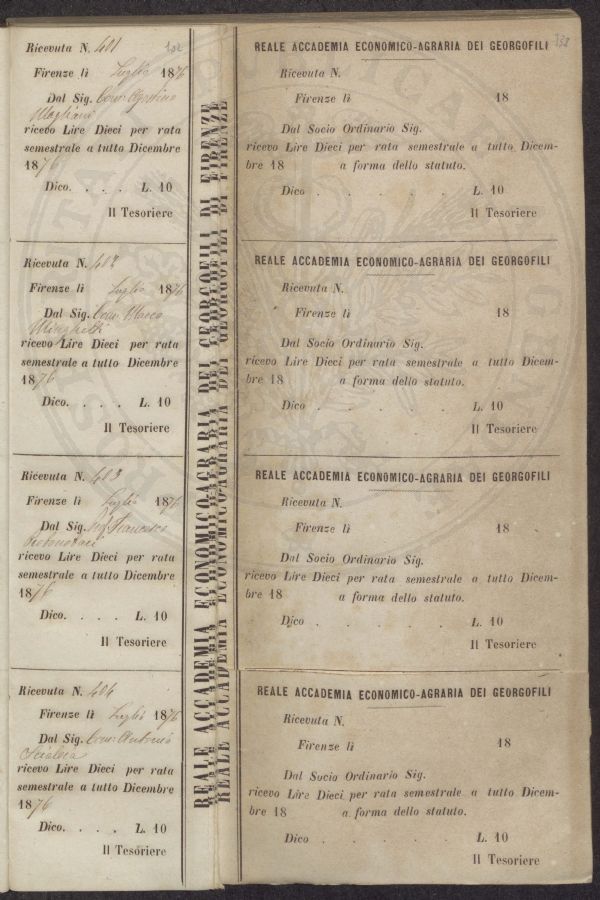 Ricevuta N. 401
102
Firenze li Luglio 1876
Dal Sig. Com. Agostino
Magliani
ricevo Lire Dieci per rata
semestrale a tutto Dicembre
1876
Dico. . . . L. 10
Il Tesoriere
Ricevuta N. 402
Firenze li Luglio 1876
Dal Sig. Com. Marco
Minghetti
ricevo Lire Dieci per rata
semestrale a tutto Dicembre
1876
Dico. . . . L. 10
Il Tesoriere
Ricevuta N. 403
Firenze li Luglio 1876
Dal Sig. Francesco
Protonotari
ricevo Lire Dieci per rata
semestrale a tutto Dicembre
1876
Dico. . . . L. 10
Il Tesoriere
Ricevuta N. 404
Firenze li Luglio 1876
Dal Sig. Com. Antonio
Scialoia
ricevo Lire Dieci per rata
semestrale a tutto Dicembre
1876
Dico. . . . L. 10
Il Tesoriere
REALE ACCADEMIA ECONOMICO-AGRARIA DEI GEORGOFILI DI FIRENZE
REALE ACCADEMIA ECONOMICO-AGRARIA DEI GEORGOFILI DI FIRENZE
REALE ACCADEMIA ECONOMICO-AGRARIA DEI GEORGOFILI
Ricevuta N.
Firenze lì 18
Dal Socio Ordinario Sig.
ricevo Lire Dieci per rata semestrale a tutto Dicem-
bre 18 a forma dello statuto.
Dico . . . . L. 10
Il Tesoriere
REALE ACCADEMIA ECONOMICO-AGRARIA DEI GEORGOFILI
Ricevuta N.
Firenze lì 18
Dal Socio Ordinario Sig.
ricevo Lire Dieci per rata semestrale a tutto Dicem-
bre 18 a forma dello statuto.
Dico . . . . L. 10
Il Tesoriere
REALE ACCADEMIA ECONOMICO-AGRARIA DEI GEORGOFILI
Ricevuta N.
Firenze lì 18
Dal Socio Ordinario Sig.
ricevo Lire Dieci per rata semestrale a tutto Dicem-
bre 18 a forma dello statuto.
Dico . . . . L. 10
Il Tesoriere
REALE ACCADEMIA ECONOMICO-AGRARIA DEI GEORGOFILI
Ricevuta N.
Firenze lì 18
Dal Socio Ordinario Sig.
ricevo Lire Dieci per rata semestrale a tutto Dicem-
bre 18 a forma dello statuto.
Dico . . . . L. 10
Il Tesoriere